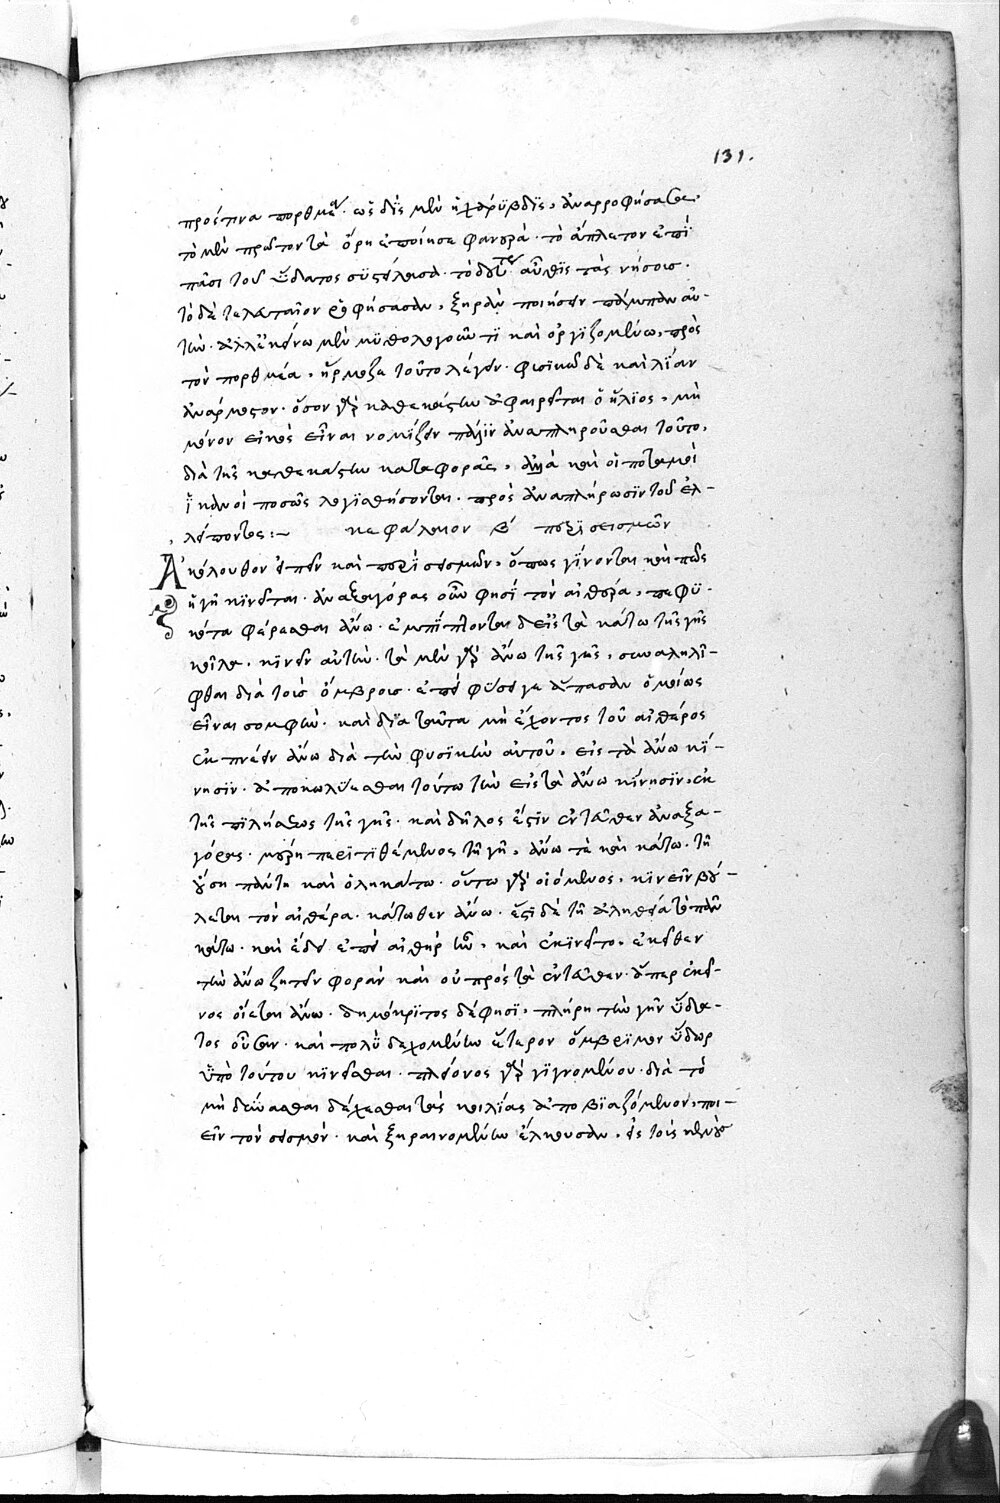 131.
πρός τινα πορθμέα. ὡς δὶς μὲν ἡ χάρυβδις, ἀναρροφήσασα,
τὸ μὲν πρῶτον τὰ ὄρη ἐποίησε φανερά. τὸ ἄπλετον ἐπὶ
πᾶσι τοῦ ὕδατος συστείλασα. τὸ δεύτερον αὖθις τὰς νήσους.
τὸ δὲ τελευταῖον ῥοφήσασαν, ξηρὰν ποιήσειν πάμπαν αὐ-
τήν. ἀλλ' ἐκείνω μὲν μυθολογοῦντι καὶ ὀργιζομένω, πρὸς
τὸν πορθμέα, ἥρμοζε τοῦτο λέγειν. φυσικῶ δὲ καὶ λίαν
ἀνάρμοστον. ὅσον γὰρ καθεκάστην ἀφαιρεῖται ὁ ἥλιος, μὴ
μόνον εἰκὸς εἶναι νομίζειν πάλιν ἀναπληροῦσθαι τοῦτο,
διὰ τῆς καθεκάστην καταφορᾶς, ἀλλὰ καὶ οἱ ποταμοὶ
ἱκανοὶ ποσῶς λογισθήσονται. πρὸς ἀναπλήρωσιν τοῦ ἐλ-
λείποντος:~ κεφάλαιον β' περὶ σεισμῶν
Ἀκόλουθον εἰπεῖν καὶ περὶ σεισμῶν, ὅπως γίνονται καὶ πῶς
ἡ γῆ κινεῖται. ἀναξαγόρας οὖν φησὶ τὸν αἰθέρα, πεφυ-
κότα φέρεσθαι ἄνω. ἐμπίπτοντα δ' εἰς τὰ κάτω τῆς γῆς
κοῖλα, κινεῖν αὐτήν. τὰ μὲν γὰρ ἄνω τῆς γῆς, συναληλῖ-
φθαι διὰ τοὺς ὄμβρους. ἐπεὶ φύσει γε ἅπασαν ὁμοίως
εἶναι σομφήν. καὶ διὰ ταῦτα μὴ ἔχοντος τοῦ αἰθέρος
ἐκπνεῖν ἄνω διὰ τὴν φυσικὴν αὐτοῦ, εἰς τὰ ἄνω κί-
νησιν. ἀποκωλύεσθαι τούτω τὴν εἰς τὰ ἄνω κίνησιν, ἐκ
τῆς πιλήσεως τῆς γῆς. καὶ δῆλος ἐστὶν ἐντεῦθεν ἀναξα-
γόρας. μέρη περιτιθέμενος τῆ γῆ, ἄνω τὲ καὶ κάτω. τῆ
οὔση πάντη καὶ ὅλη κάτω. οὕτω γὰρ οἰόμενος, κινεῖν βού-
λεται τὸν αἰθέρα. κάτωθεν ἄνω. ἔστι δὲ τῆ ἀληθεία τὸ πᾶν
κάτω. καὶ ἔδει ἐπεὶ αἰθὴρ ἦν, καὶ ἐκινεῖτο, ἐκεῖθεν
τὴν ἄνω ζητεῖν φορὰν καὶ οὐ πρὸς τὰ ἐντεῦθεν. ἅπερ ἐκεῖ-
νος οἴεται ἄνω. δημόκριτος δέ φησι, πλήρη τὴν γῆν ὕδα-
τος οὖσαν. καὶ πολὺ δεχομένην ἕτερον ὄμβριμον ὕδωρ
ὑπὸ τούτου κινεῖσθαι. πλείονος γὰρ γιγνομένου. διὰ τὸ
μὴ δύνασθαι δέχεσθαι τὰς κοιλίας ἀποβιαζόμενον, ποι-
εῖν τὸν σεισμόν. καὶ ξηραινομένην ἕλκουσαν, εἰς τοὺς κενοὺς